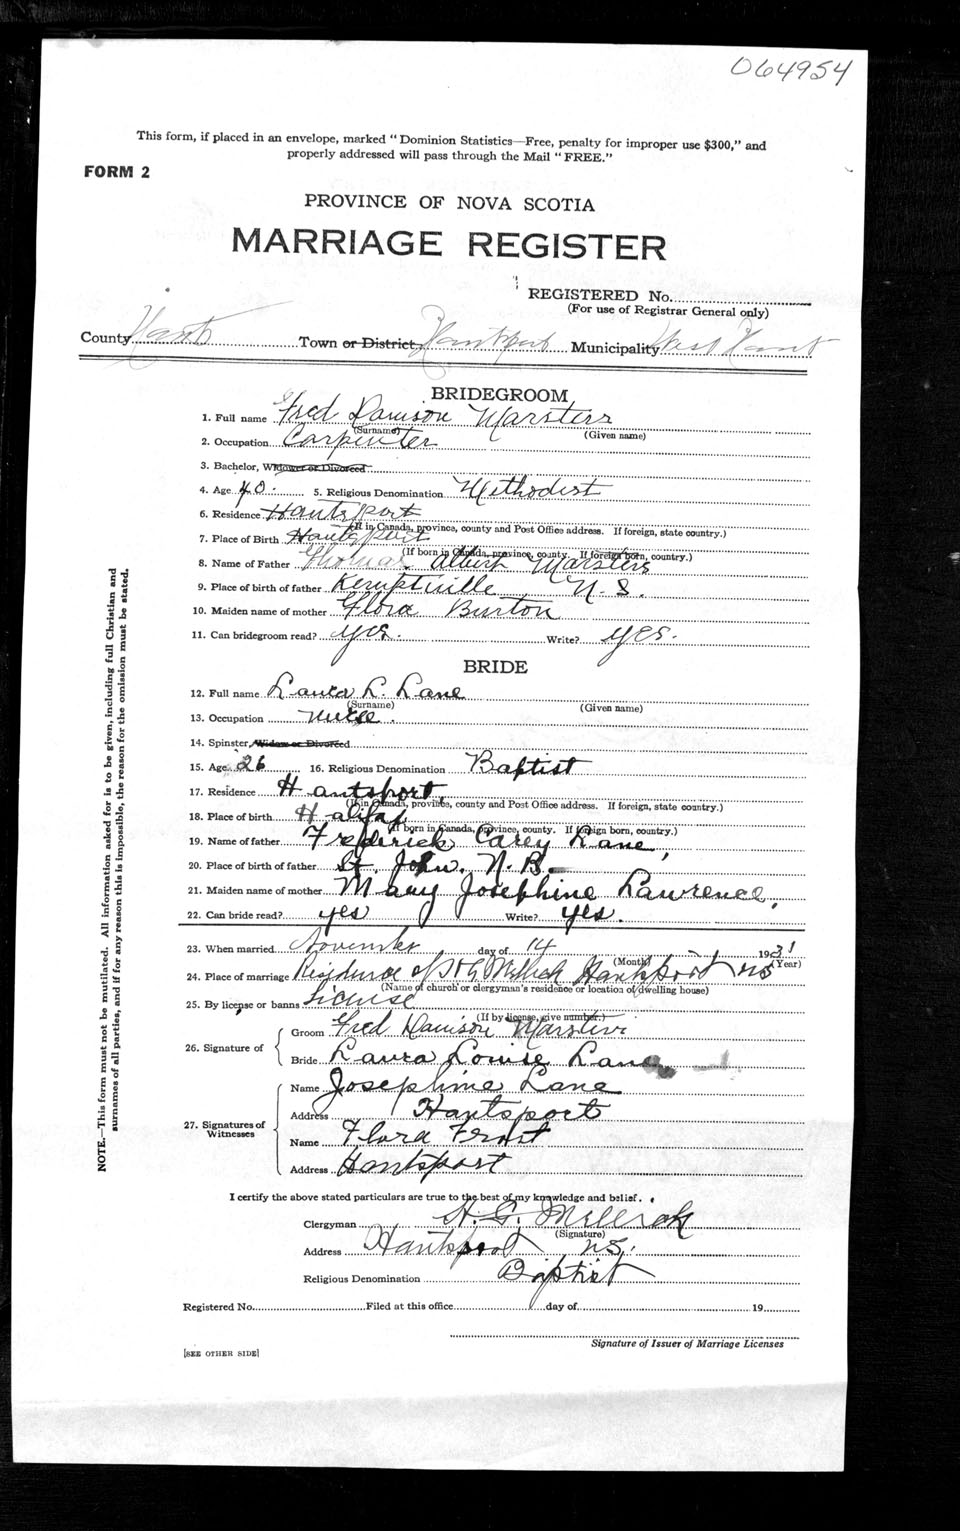 064954
This form, if placed in an envelope, marked "Dominion Statistics—Free, penalty for improper use $300," and
properly addressed will pass through the Mail "FREE."
FORM 2
PROVINCE OF NOVA SCOTIA
MARRIAGE REGISTER
REGISTERED No.
(For use of Registrar General only)
County Hants Town or District Hantsport Municipality West Hants
BRIDEGROOM
1. Full name Fred Davison Marsters
(Surname) (Given name)
2. Occupation Carpenter
3. Bachelor, Widower or Divorced
4. Age 40. 5. Religious Denomination Methodist
6. Residence Hantsport
(If in Canada, province, county and Post Office address. If foreign, state country.)
7. Place of Birth Hantsport
(If born in Canada, province, county. If foreign born, country.)
8. Name of Father Thomas Albert Marsters
9. Place of birth of father Kemptville N. S.
10. Maiden name of mother Flora Burton
11. Can bridegroom read? yes. Write? yes.
BRIDE
12. Full name Laura L. Lane
(Surname) (Given name)
13. Occupation nurse.
14. Spinster, Widow or Divorced
15. Age 26 16. Religious Denomination Baptist
17. Residence Hantsport,
(If in Canada, province, county and Post Office address. If foreign, state country.)
18. Place of birth Halifax
(If born in Canada, province, county. If foreign born, country.)
19. Name of father Frederick Carey Lane,
20. Place of birth of father St. John, N. B.
21. Maiden name of mother Mary Josephine Lawrence,
22. Can bride read? yes Write? yes.
23. When married November day of 14 1931
(Month) (Year)
24. Place of marriage Residence of H G Mellick Hantsport NS
(Name of church or clergyman's residence or location of dwelling house)
25. By license or banns License
(If by license, give number.)
26. Signature of Groom Fred Davison Marsters
Bride Laura Louise Lane
27. Signatures of Witnesses Name Josephine Lane
Address Hantsport
Name Flora Frost
Address Hantsport
I certify the above stated particulars are true to the best of my knowledge and belief.
Clergyman H. G. Mellick
(Signature)
Address Hantsport NS.
Religious Denomination Baptist
Registered No. Filed at this office day of 19
Signature of Issuer of Marriage Licenses
[SEE OTHER SIDE]
NOTE.—This form must not be mutilated. All information asked for is to be given, including full Christian and
surnames of all parties, and if for any reason this is impossible, the reason for the omission must be stated.